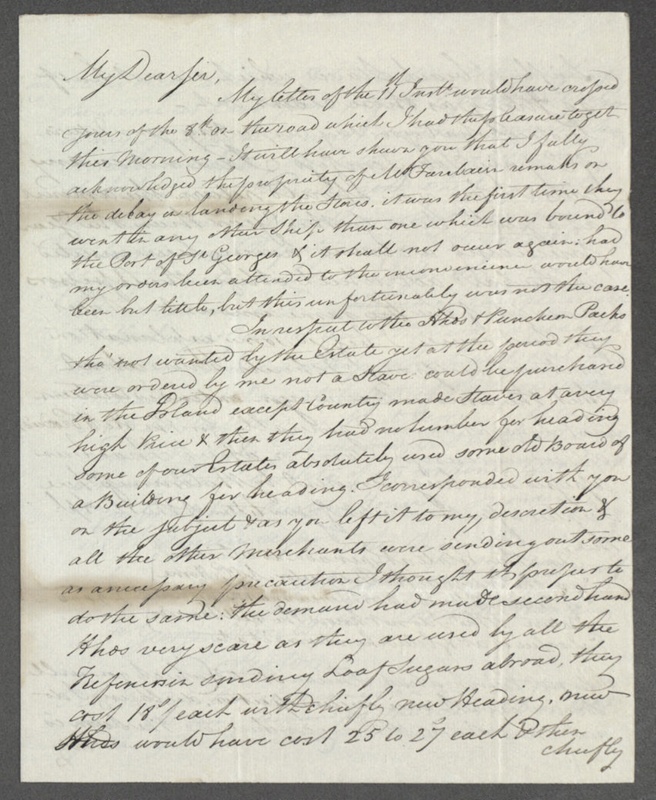 My Dear Sir,
My letter of the 11th Inst. would have crossed
yours of the 8th on the road which I had the pleasure to get
this Morning – It will have shewn you that I fully
acknowledged the propriety of Mr Fairbairn remarks on
the delay in landing the Stores. it was the first time they
went in any other Ship than one which was bound to
the Port of St Georges & it shall not occur again: had
my orders been attended to the inconvenience would have
been but little, but this unfortunately was not the case.
In respect to the Hhds & Puncheon Packs
tho' not wanted by the Estate yet at the period they
were ordered by me not a Stave could be purchased
in the Island except Country made Staves at a very
high Price & then they had no lumber for heading
some of our Estates absolutely used some old Board of
a Building for heading. I corresponded with you
on the subject & as you left it to my discretion &
all the other Merchants were sending out some
as a necessary precaution I thought it proper to
do the same: the demand had made second hand
Hhds very scarce as they are used by all the
Refiners in sending Loaf Sugars abroad, they
cost 18/ each with chiefly new Heading, new
Hhds would have cost 25 to 27 each & then
chiefly